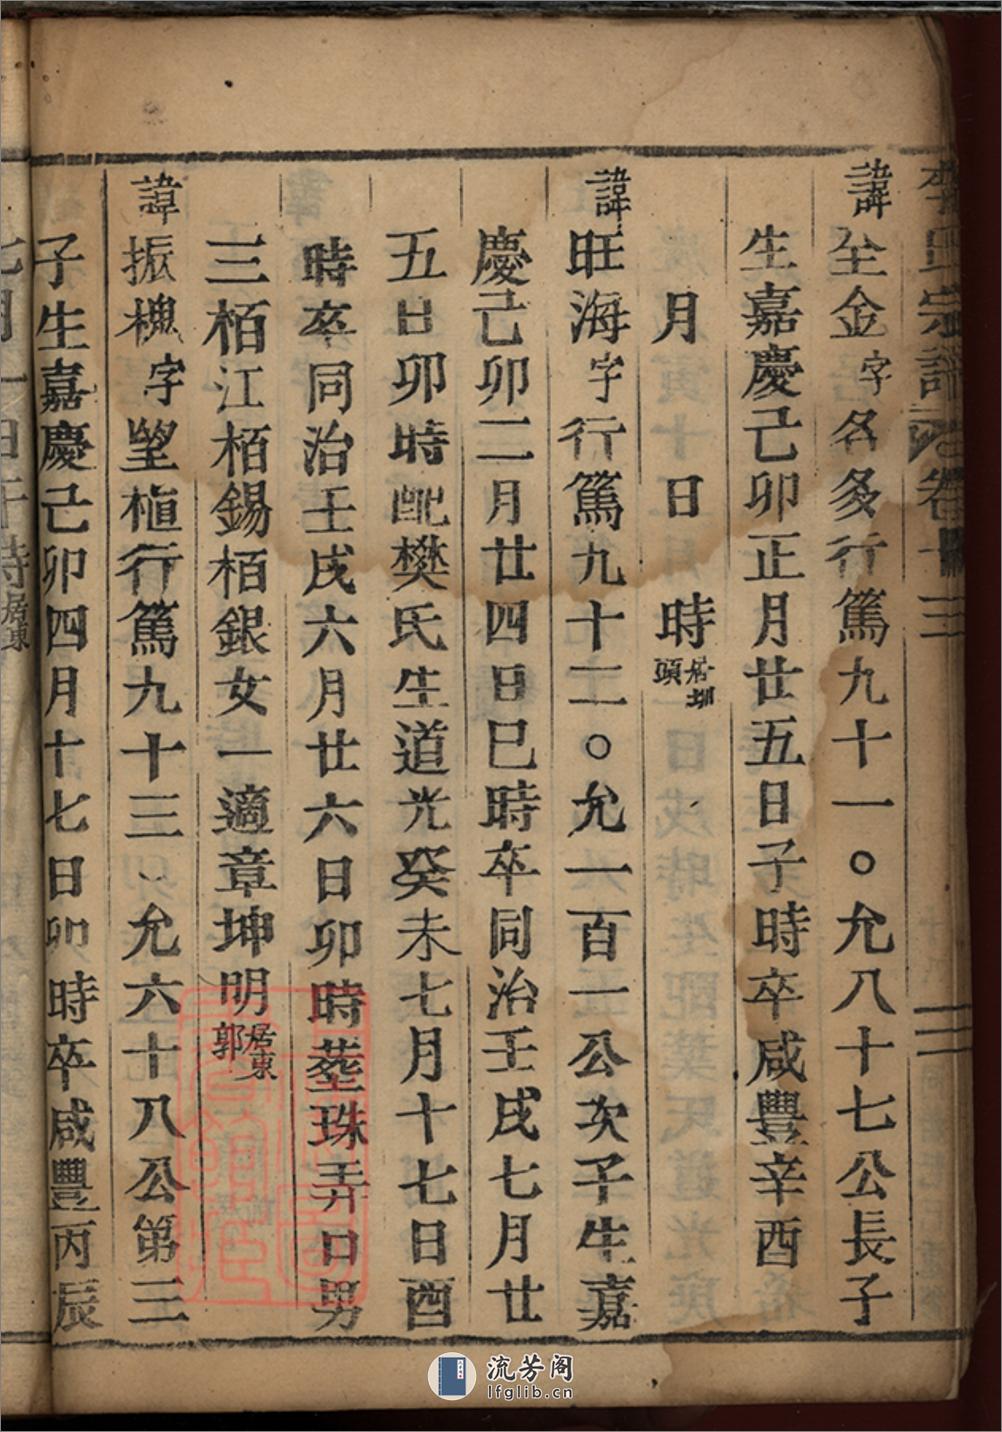 李氏宗譜卷十三
諱
全金字名多行篤九十一○允八十七公長子
生嘉慶己卯正月廿五日子時卒咸豐辛酉
月日時居圳頭
諱
旺海字行篤九十二○允一百一公次子生嘉
慶己卯二月廿四日巳時卒同治壬戌七月廿
五日卯時配樊氏生道光癸未七月十七日酉
時卒同治壬戌六月廿六日卯時塟珠弄口男
三栢江栢錫栢銀女一適章坤明居東郭
諱
振槐字望植行篤九十三○允六十八公第三
子生嘉慶己卯四月十七日卯時卒咸豐丙辰
七月一日午時居東
流芳阁
lfglib.cn